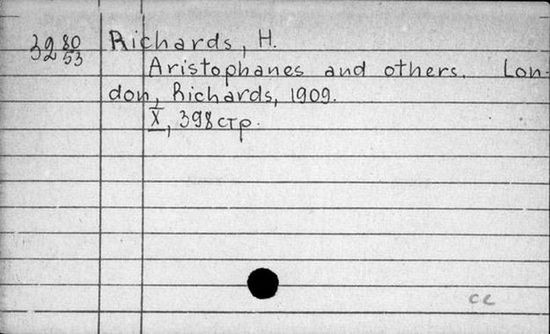 32 80/53 Richards, H.
Aristophanes and others. Lon-
don, Richards, 1909.
X, 398 стр.
се